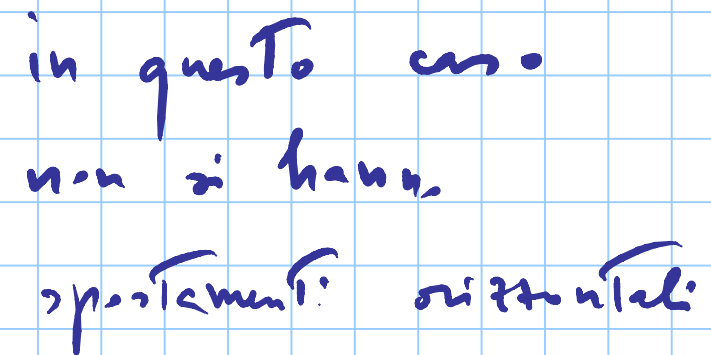 in questo caso
non si hanno
spostamenti orizzontali